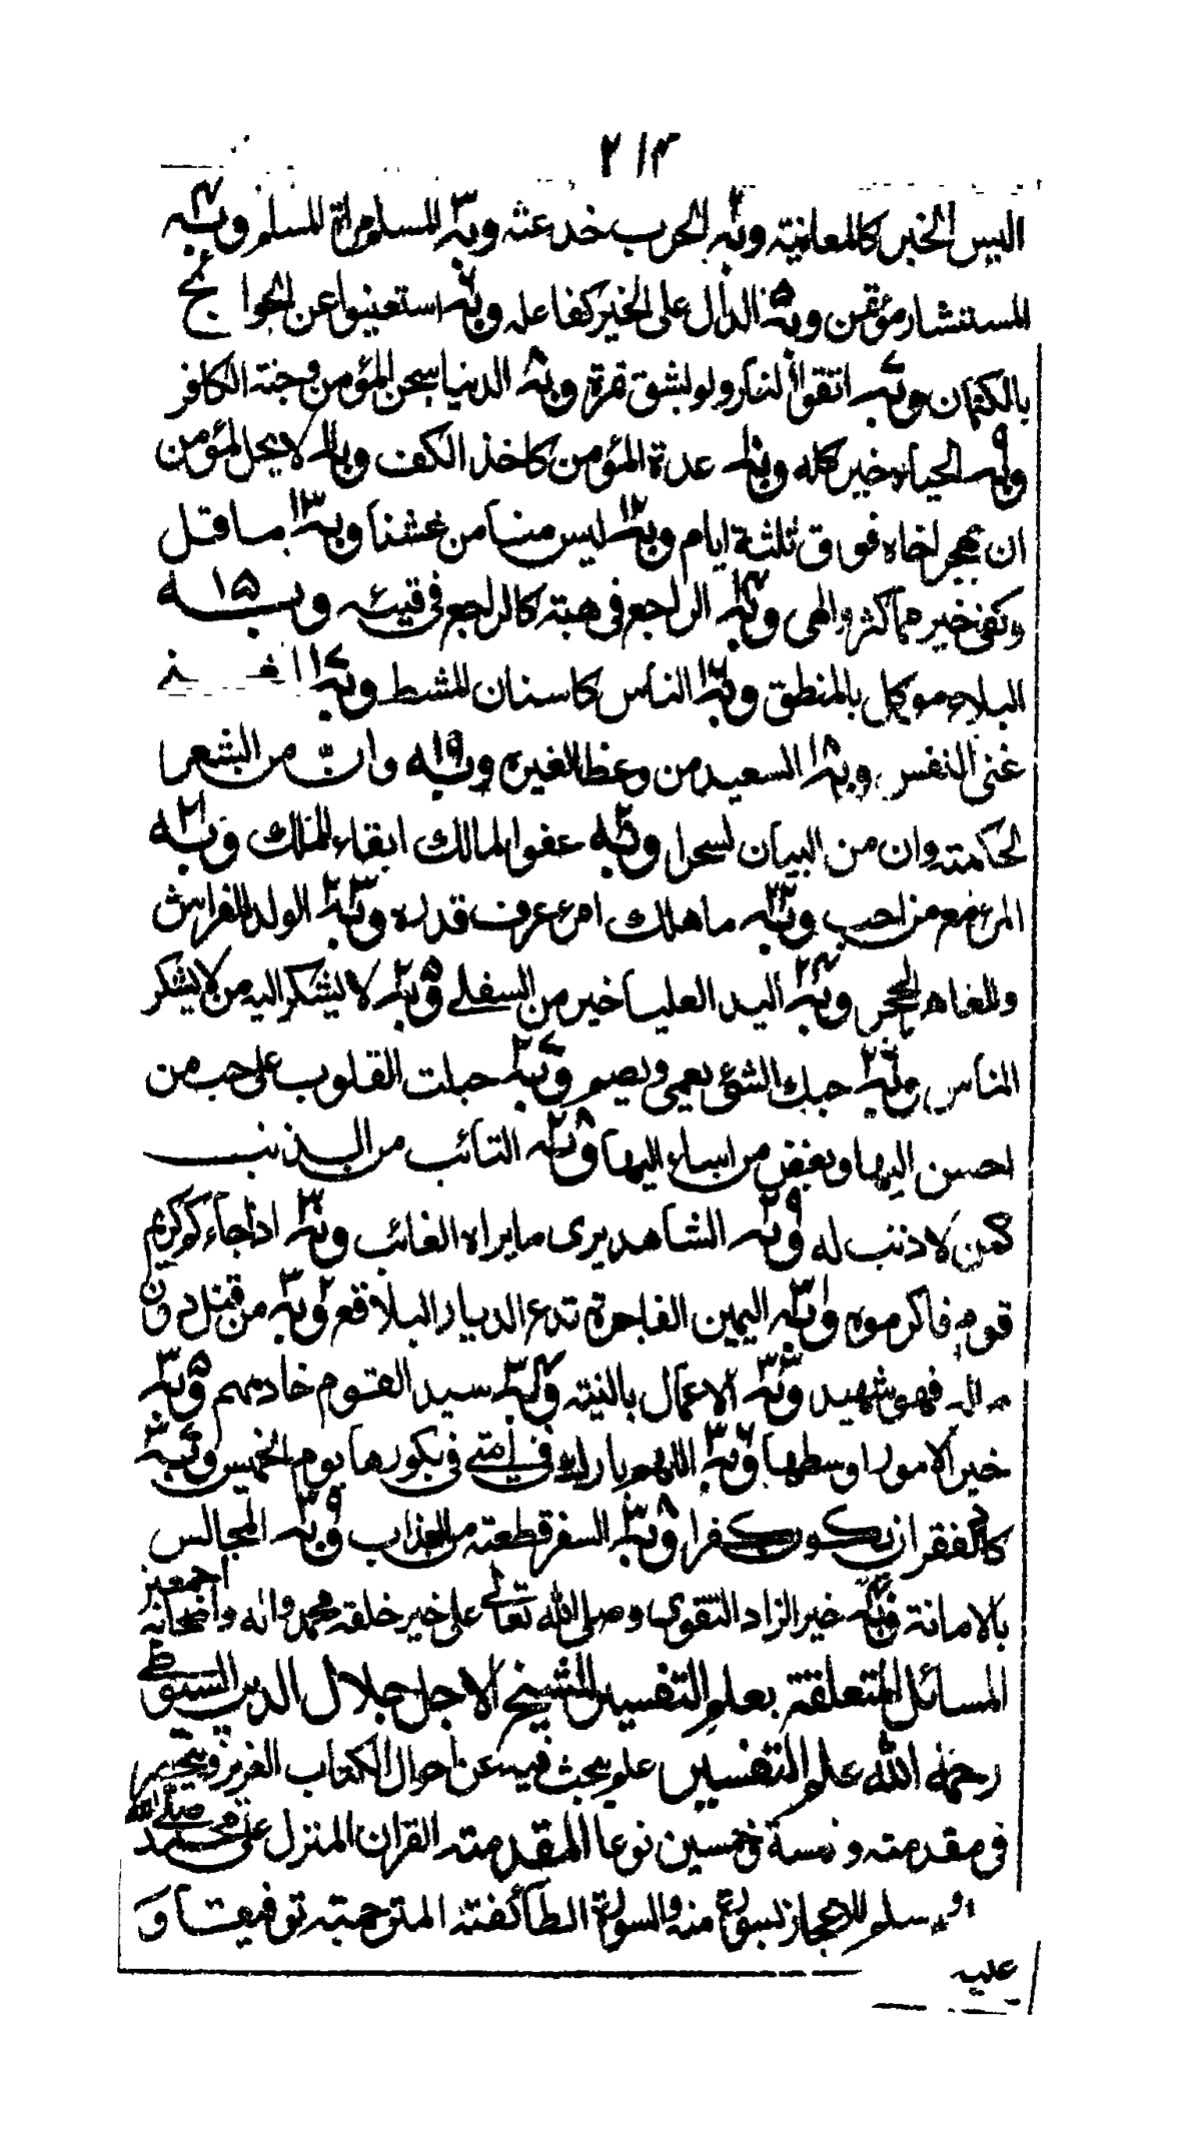 ۲۱۴
اليس الخبر كالمعاينة وبه۲ الحرب خدعته وبه۳ المسلم مراة المسلم وبه۴
المستشار مؤتمن وبه۵ الدال على الخير كفاعله وبه۶ استعينوا عن الحوائج
بالكتمان وبه۷ اتقوا النار ولو بشق تمرة وبه۸ الدنيا سجن المؤمن وجنة الكافر
وبه۹ الحياء خير كله وبه۱۰ عدة المؤمن كاخذ الكف وبه۱۱ لا يحل لمؤمن
ان يهجر اخاه فوق ثلثة ايام وبه۱۲ ليس منا من غشنا وبه۱۳ ما قل
وكفى خير مما كثر والهى وبه۱۴ الراجع فى هبته كالراجع فى قيئه وبه۱۵
البلاء موكل بالمنطق وبه۱۶ الناس كاسنان المشط وبه۱۷
غنى النفس وبه۱۸ السعيد من وعظ الغيره وبه۱۹ وان من الشعر
لحكمته وان من البيان لسحرا وبه۲۰ عفو المالك ابقاء للملك وبه۲۱
المرء مع من احب وبه۲۲ ما هلك امرء عرف قدره وبه۲۳ الولد للفراش
وللعاهر الحجر وبه۲۴ اليد العليا خير من السفلے وبه۲۵ لا يشكر اليه من لا يشكر
الناس وبه۲۶ حبك الشئ يعمى ويصم وبه۲۷ جبلت القلوب على حب من
احسن اليها وبغض من اساء اليها وبه۲۸ التائب من الذنب
كمن لا ذنب له وبه۲۹ الشاهد يرى ما يراه الغائب وبه۳۰ اذا جاءكم كريم
قوم فاكرموه وبه۳۱ اليمين الفاجرة تدع الديار البلاقع وبه۳۲ من قتل دون
ماله فهو شهيد وبه۳۳ الاعمال بالنية وبه۳۴ سيد القوم خادمهم وبه۳۵
خير الامور اوسطها وبه۳۶ اللهم بارك فى امتے فى بكورها يوم الخميس وبه۳۷
كاد الفقر ان يكون كفرا وبه۳۸ السفر قطعته من العذاب وبه۳۹ المجالس
بالامانة وبه۴۰ خير الزاد التقوى وصلى الله تعالے على خير خلقه محمد واله واصحابه اجمعين
المسائل المتعلقة بعلم التفسير للشيخ الاجل جلال الدين السيوطے
رحمة الله علم التفسير علم يبحث فيه عن احوال الكتاب العزيز وينحصر
فى مقدمته وخمسة وخمسين نوعا المقدمته القران المنزل على محمد صلے الله
وسلم للاعجاز بسورة منه والسورة الطائفته المترجمته توقيفا و
عليه